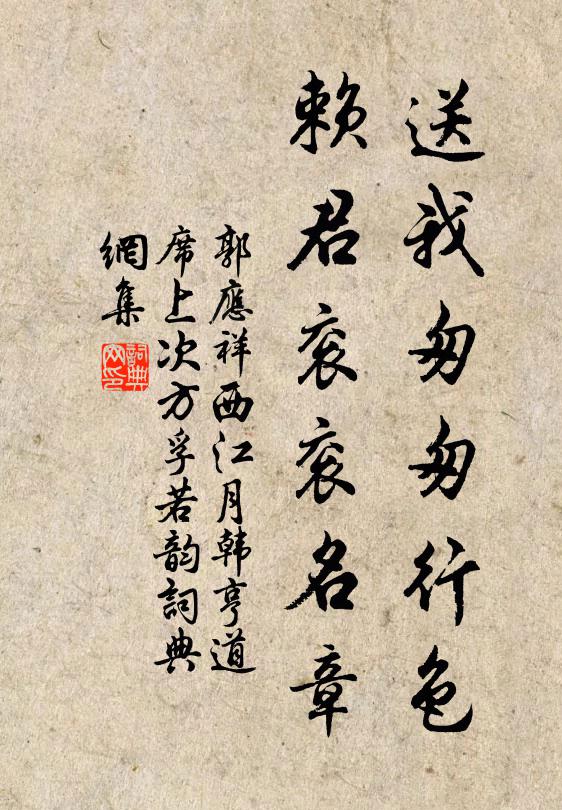 送我匆匆行色
賴君衮衮名章
郭應祥西江月韩亨道
席上次方孚若韵詞典
網集
詞典網印